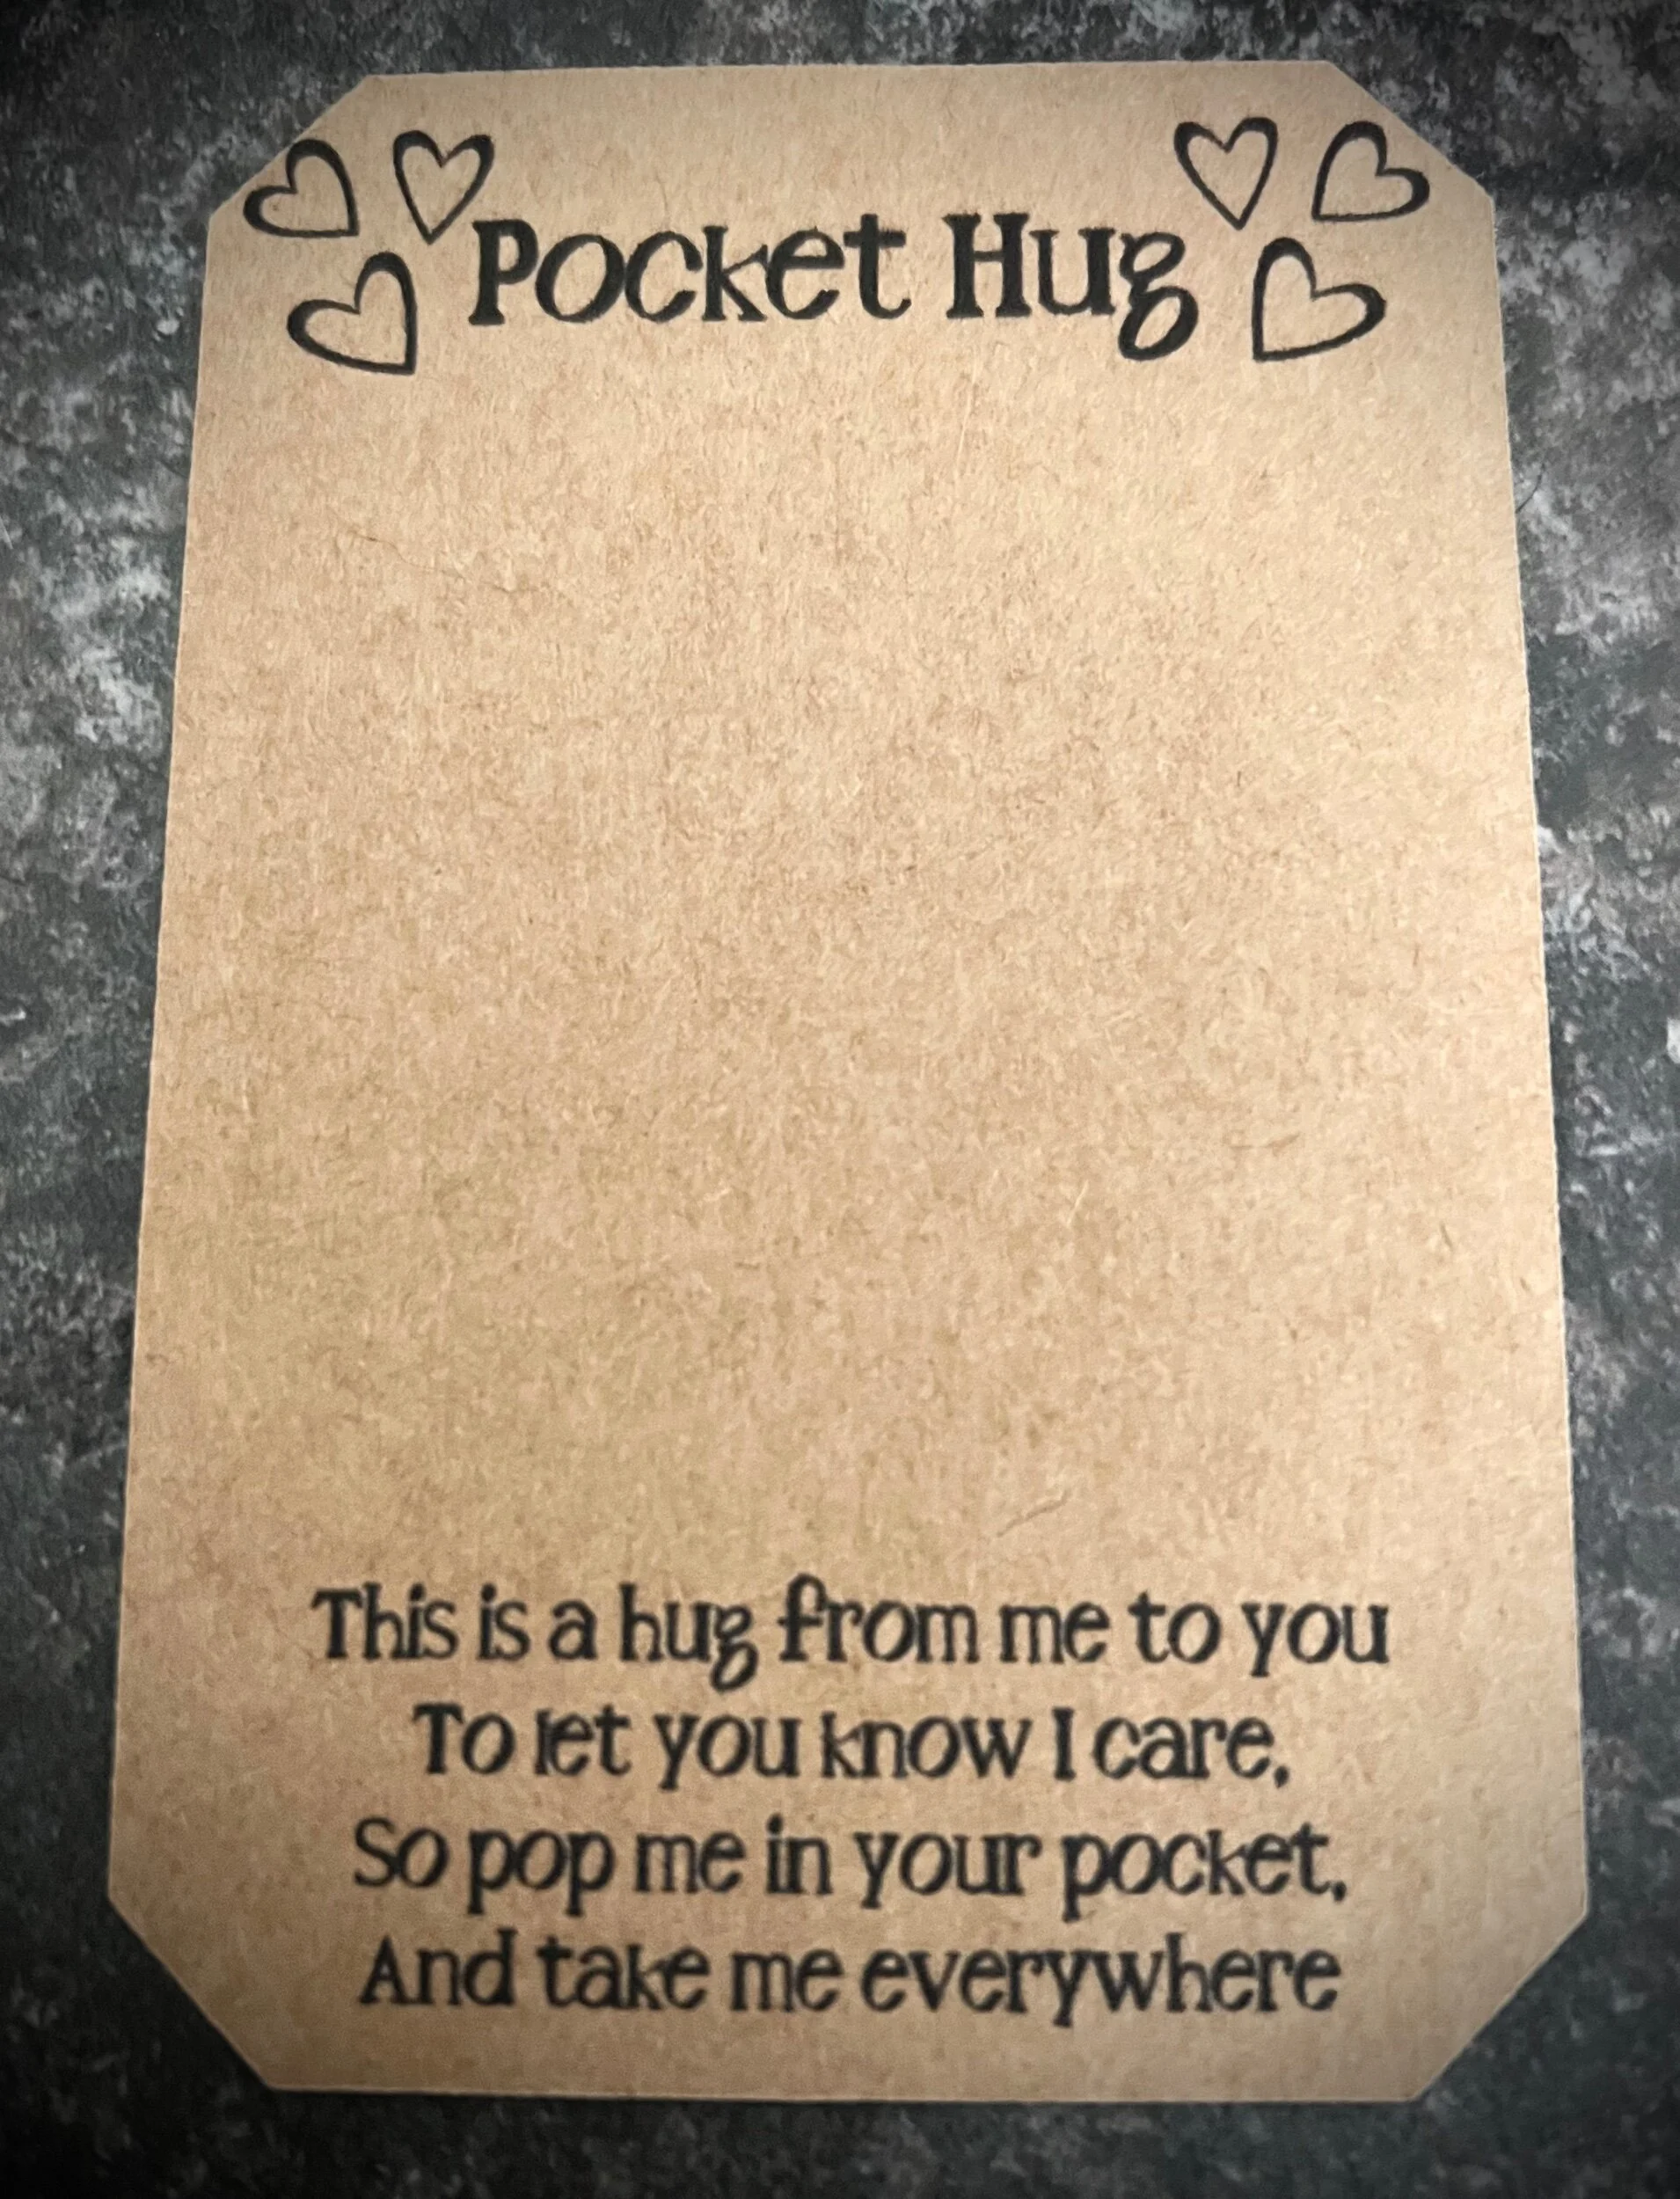 Pocket Hug
This is a hug from me to you
To let you know I care,
So pop me in your pocket,
And take me everywhere